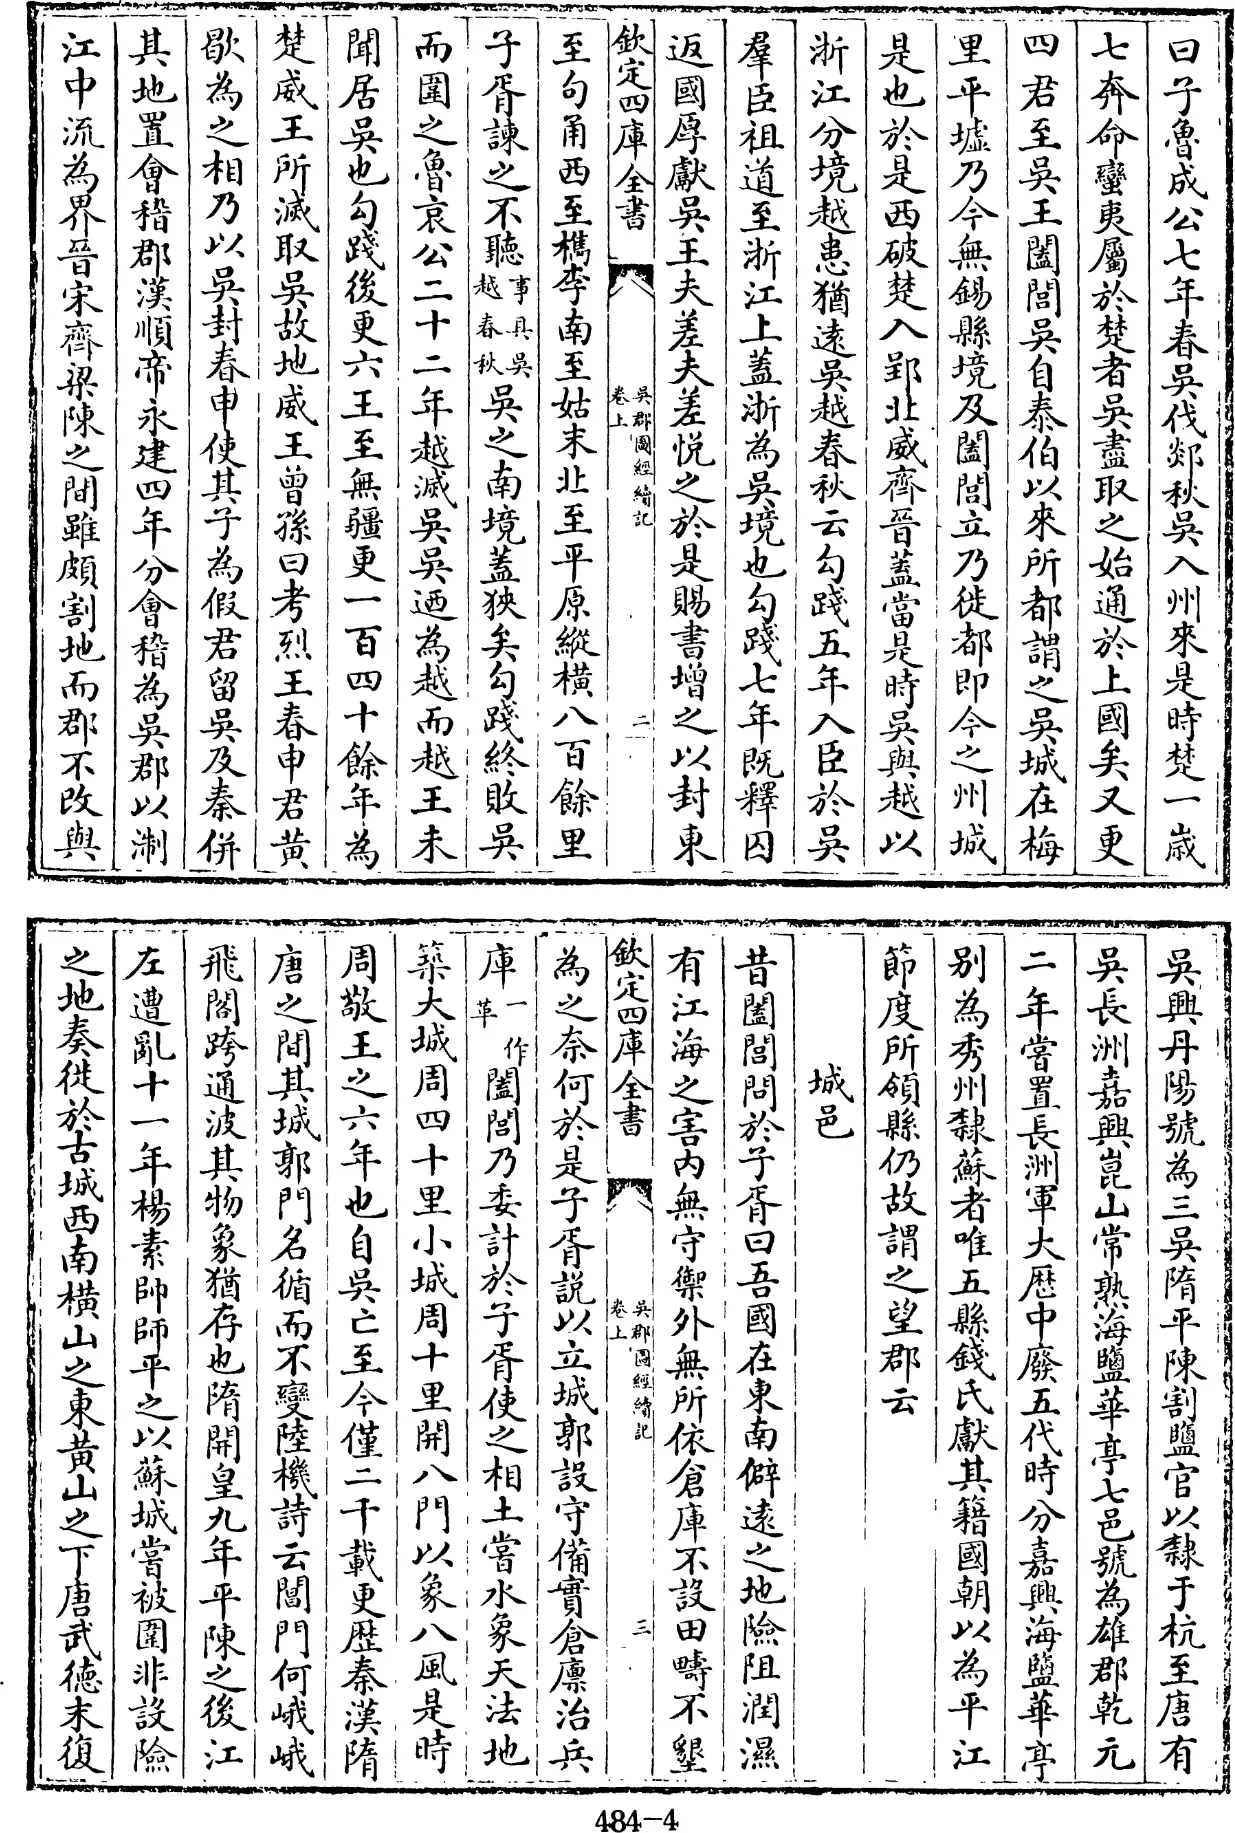 曰子魯成公七年春吳伐郯秋吳入州來是時楚一歲
七奔命蠻夷屬於楚者吳盡取之始通於上國矣又更
四君至吳王闔閭吳自泰伯以來所都謂之吳城在梅
里平墟乃今無錫縣境及闔閭立乃徙都即今之州城
是也於是西破楚入郢北威齊晉蓋當是時吳與越以
浙江分境越患猶遠吳越春秋云勾踐五年入臣於吳
羣臣祖道至浙江上蓋浙為吳境也勾踐七年既釋囚
返國厚獻吳王夫差夫差悅之於是賜書增之以封東
欽定四庫全書 吳郡圖經續記 卷上 二
至句甬西至檇李南至姑末北至平原縱橫八百餘里
子胥諫之不聽事具吳越春秋吳之南境蓋狹矣勾踐終敗吳
而圍之魯哀公二十二年越滅吳吳迺為越而越王未
聞居吳也勾踐後更六王至無疆更一百四十餘年為
楚威王所滅取吳故地威王曾孫曰考烈王春申君黃
歇為之相乃以吳封春申使其子為假君留吳及秦併
其地置會稽郡漢順帝永建四年分會稽為吳郡以淛
江中流為界晉宋齊梁陳之間雖頗割地而郡不改與
吳興丹陽號為三吳隋平陳割鹽官以隸于杭至唐有
吳長洲嘉興崑山常熟海鹽華亭七邑號為雄郡乾元
二年嘗置長洲軍大歷中廢五代時分嘉興海鹽華亭
別為秀州隸蘇者唯五縣錢氏獻其籍國朝以為平江
節度所領縣仍故謂之望郡云
城邑
昔闔閭問於子胥曰吾國在東南僻遠之地險阻潤濕
有江海之害內無守禦外無所依倉庫不設田疇不墾
欽定四庫全書 吳郡圖經續記 卷上 三
為之奈何於是子胥說以立城郭設守備實倉廩治兵
庫一作革闔閭乃委計於子胥使之相土嘗水象天法地
築大城周四十里小城周十里開八門以象八風是時
周敬王之六年也自吳亡至今僅二千載更歷秦漢隋
唐之間其城郭門名循而不變陸機詩云閶門何峨峨
飛閣跨通波其物象猶存也隋開皇九年平陳之後江
左遭亂十一年楊素帥師平之以蘇城嘗被圍非設險
之地奏徙於古城西南橫山之東黃山之下唐武德末復
484-4